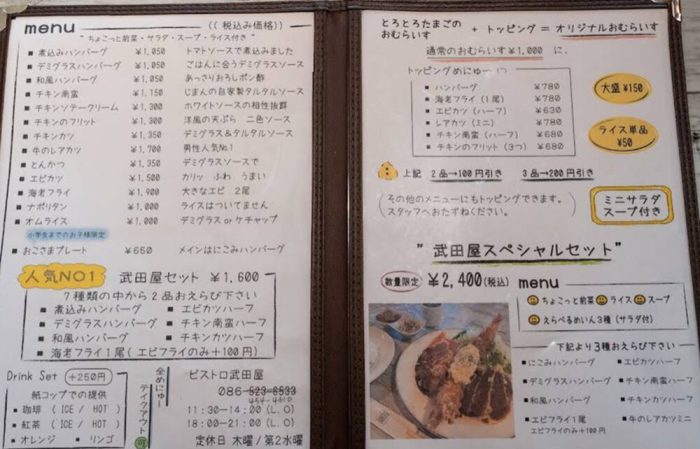 menu （( 税込み価格 ))
" ちょこっと前菜・サラダ・スープ・ライス付き "
煮込みハンバーグ ￥1,050 トマトソースで煮込みました
デミグラスハンバーグ ￥1,050 ごはんに合うデミグラスソース
和風ハンバーグ ￥1,050 あっさりおろしポン酢
チキン南蛮 ￥1,150 じまんの自家製タルタルソース
チキンソテークリーム ￥1,300 ホワイトソースの相性抜群
チキンのフリット ￥1,300 洋風の天ぷら 二色ソース
チキンカツ ￥1,350 デミグラス＆タルタルソース
牛のレアカツ ￥1,700 男性人気No.1
とんかつ ￥1,350 デミグラスソースで
エビカツ ￥1,500 カリッ ふわ、うまい
海老フライ ￥1,900 大きなエビ 2尾
ナポリタン ￥1,000 ライスはついてません
オムライス ￥1,000 デミグラス or ケチャップ
小学生までのお子様限定
おこさまプレート ￥650 メインはにこみハンバーグ
人気NO1 武田屋セット ￥1,600
7種類の中から2品おえらび下さい
煮込みハンバーグ ・エビカツハーフ
デミグラスハンバーグ ・チキン南蛮ハーフ
和風ハンバーグ ・チキンカツハーフ
海老フライ1尾（エビフライのみ＋100円）
Drink Set +250円
紙コップでの提供
珈琲 （ICE / HOT ）
紅茶 （ICE / HOT ）
オレンジ ・リンゴ
全めにゅー
テイクアウト可
ビストロ武田屋
086-523-6533
454-4610
11:30-14:00(L.O)
18:00-21:00(L.O)
定休日 木曜/第2水曜
とろとろたまごの
おむらいす ＋ トッピング ＝ オリジナルおむらいす
通常のおむらいす￥1,000 に、
トッピングめにゅー
ハンバーグ ￥780
海老フライ（1尾） ￥780
エビカツ（ハーフ） ￥630
レアカツ（ミニ） ￥780
チキン南蛮（ハーフ） ￥680
チキンのフリット（3つ） ￥680
大盛 ￥150
ライス単品
￥50
上記 2品→100円引き 3品→200円引き
その他のメニューにもトッピングできます。
スタッフへおたずねください。
ミニサラダ
スープ付き
" 武田屋スペシャルセット"
数量限定 ￥2,400(税込) menu
ちょこっと前菜 ライス スープ
えらべるめいん3種（サラダ付）
下記より3種おえらび下さい
・にこみハンバーグ ・エビカツハーフ
・デミグラスハンバーグ ・チキン南蛮ハーフ
・和風ハンバーグ ・チキンカツハーフ
・エビフライ1尾 ・牛のレアカツミニ
エビフライのみ＋100円